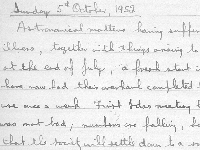 Sunday 5th October, 1952
Astronomical matters having suffered
illness, together with things owing to
at the end of July, a fresh start is
have now had their overhaul completed
use once a week. First Soc. meeting
was not bad; numbers are falling, but
that the society will settle down to a